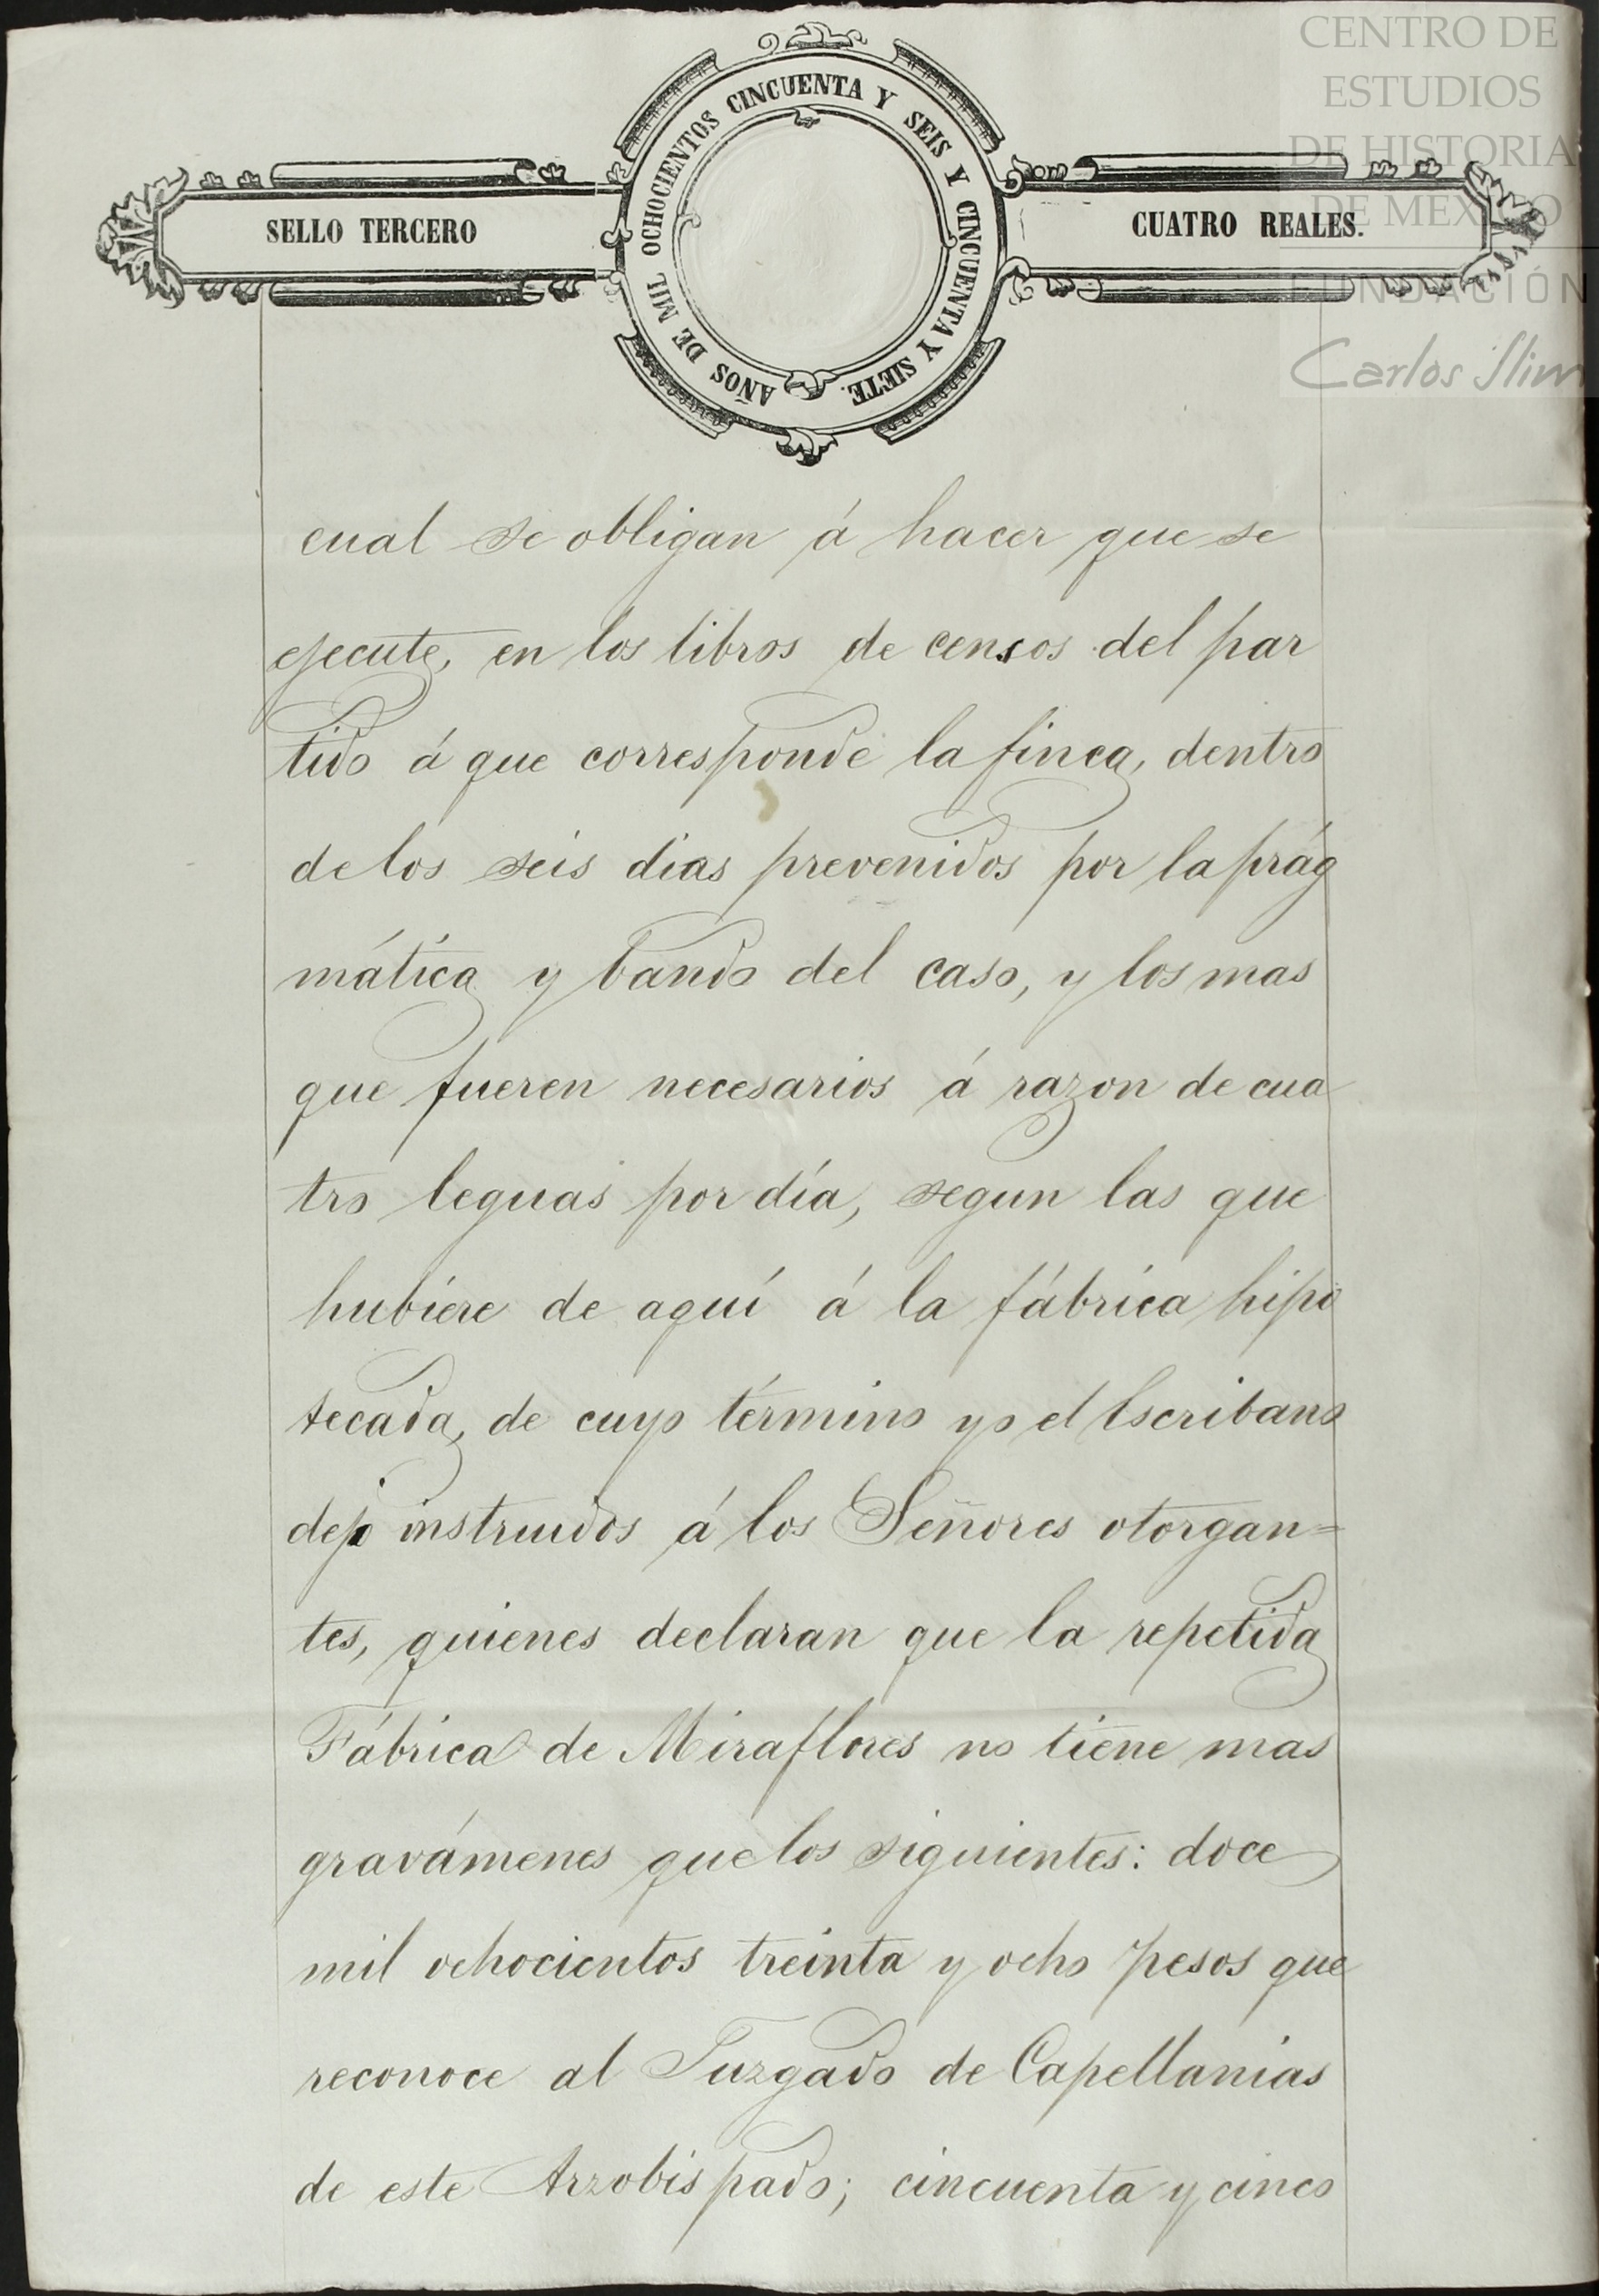 CENTRO DE
ESTUDIOS
DE HISTORIA
DE MEXICO
FUNDACIÓN
Carlos Slim
SELLO TERCERO
AÑOS DE MIL OCHOCIENTOS CINCUENTA Y SEIS Y CINCUENTA Y SIETE.
CUATRO REALES.
cual se obligan á hacer que se
ejecute, en los libros de censos del par
tido á que corresponde la finca, dentro
de los seis dias prevenidos por la prág
mática y bando del caso, y los mas
que fueren necesarios á razon de cua
tro leguas por día, segun las que
hubiere de aquí á la fábrica hipo
tecada, de cuyo término yo el Escribano
dejo instruidos á los Señores otorgan=
tes, quienes declaran que la repetida
Fábrica de Miraflores no tiene mas
gravámenes que los siguientes: doce
mil ochocientos treinta y ocho pesos que
reconoce al Juzgado de Capellanías
de este Arzobispado; cincuenta y cinco